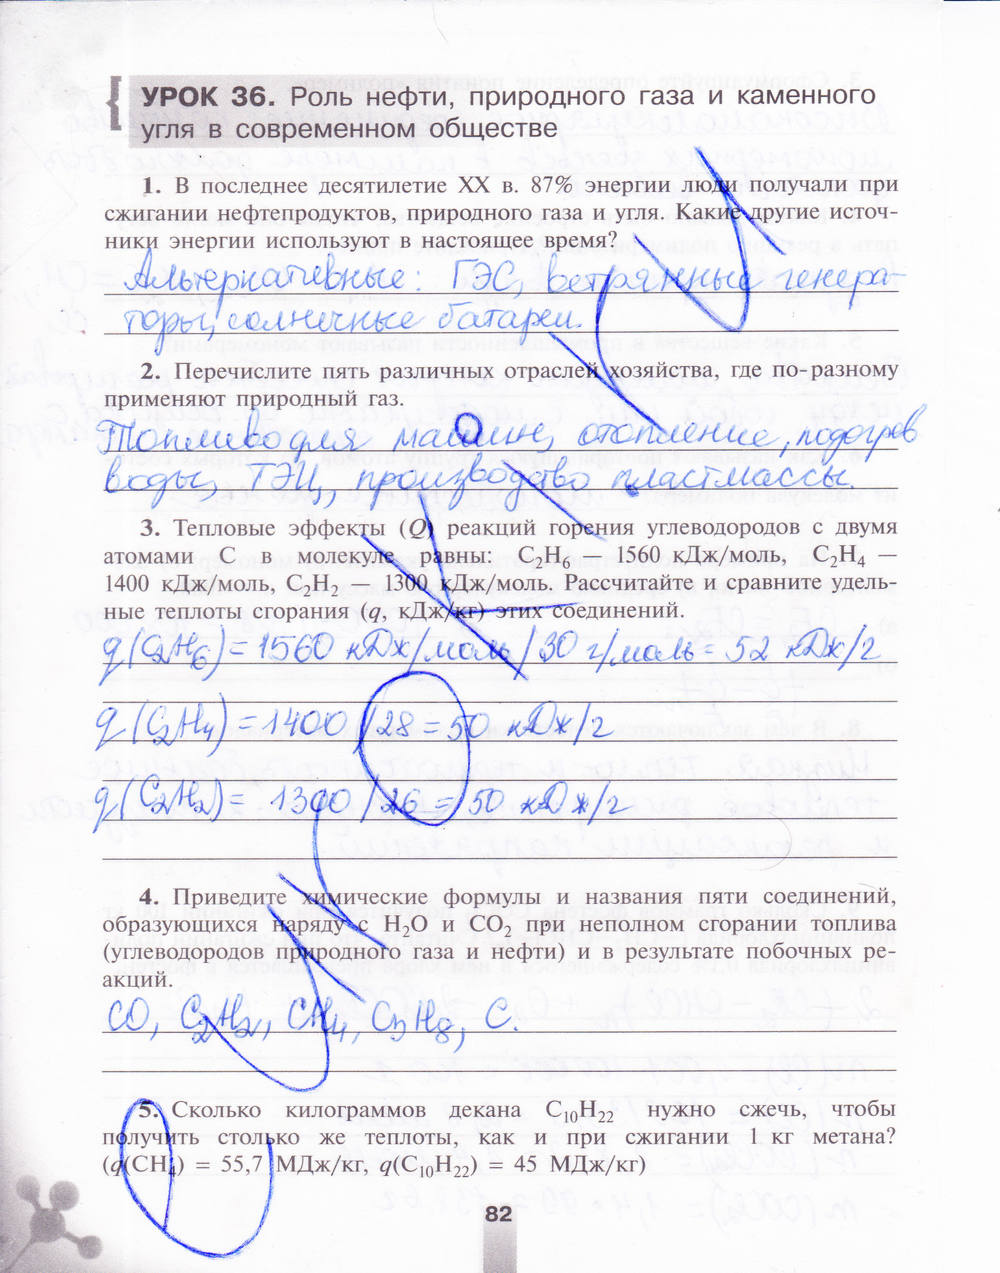 УРОК 36. Роль нефти, природного газа и каменного
угля в современном обществе
1. В последнее десятилетие XX в. 87% энергии люди получали при
сжигании нефтепродуктов, природного газа и угля. Какие другие источ-
ники энергии используют в настоящее время?
Альтернативные: ГЭС, ветрянные генера-
торы, солнечные батареи.
2. Перечислите пять различных отраслей хозяйства, где по-разному
применяют природный газ.
Топливо для машин, отопление, подогрев
воды, ТЭЦ, производство пластмассы.
3. Тепловые эффекты (Q) реакций горения углеводородов с двумя
атомами С в молекуле равны: C₂H₆ — 1560 кДж/моль, C₂H₄ —
1400 кДж/моль, C₂H₂ — 1300 кДж/моль. Рассчитайте и сравните удель-
ные теплоты сгорания (q, кДж/кг) этих соединений.
q(C₂H₆) = 1560 кДж/моль / 30 г/моль = 52 кДж/г
q(C₂H₄) = 1400 / 28 = 50 кДж/г
q(C₂H₂) = 1300 / 26 = 50 кДж/г
4. Приведите химические формулы и названия пяти соединений,
образующихся наряду с H₂O и CO₂ при неполном сгорании топлива
(углеводородов природного газа и нефти) и в результате побочных ре-
акций.
CO, C₂H₂, CH₄, C₃H₈, C.
5. Сколько килограммов декана C₁₀H₂₂ нужно сжечь, чтобы
получить столько же теплоты, как и при сжигании 1 кг метана?
(q(CH₄) = 55,7 МДж/кг, q(C₁₀H₂₂) = 45 МДж/кг)
82